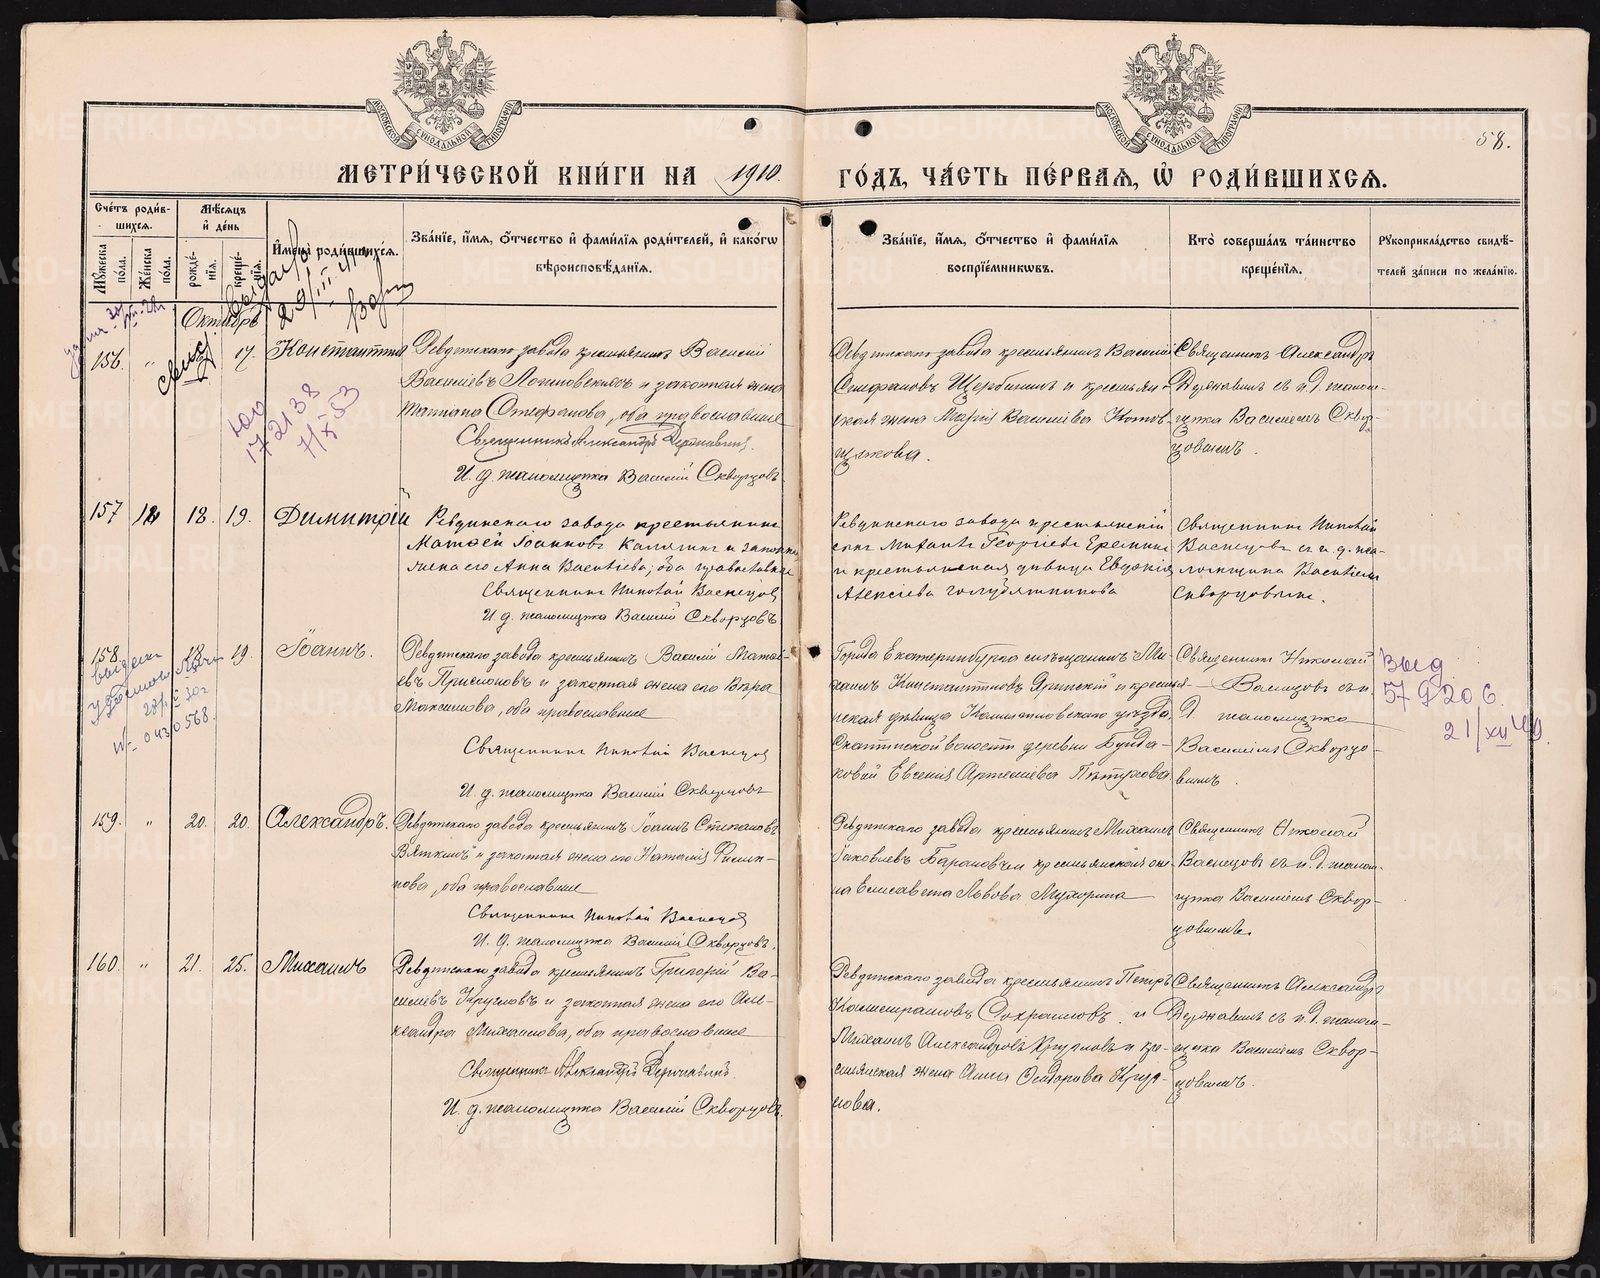 58.
МЕТРИ́ЧЕСКОЙ КНИ́ГИ НА 1910 ГО́ДЪ, ЧА́СТЬ ПЕ́РВАѦ, Ѽ РОДИ́ВШИХСѦ.
Сче́тъ роди́в-
шихсѧ.
Мѣ́сѧцъ
и҆ де́нь
Мꙋ́жеска
по́ла.
Же́нска
по́ла.
рожде́-
нїѧ.
креще́-
нїѧ.
И҆мена̀ роди́вшихсѧ.
Зва́нїе, и҆́мѧ, ѻ҆́тчество и҆ фами́лїѧ роди́телей, и҆ како́гѡ
вѣроисповѣ́данїѧ.
Зва́нїе, и҆́мѧ, ѻ҆́тчество и҆ фами́лїѧ
воспрїе́мникѡвъ.
Кто̀ соверша́лъ та́инство
креще́нїѧ.
Рꙋкоприкла́дство свидѣ́-
телей за́писи по жела́нїю.
Октябрь
156. " 17. Константинъ
Ревдинскаго завода крестьянинъ Василій
Васильевъ Логиновскихъ и законная жена
Татіана Стефанова, оба православные
Священникъ Александръ Державинъ.
И. д. псаломщика Василій Скворцовъ
Ревдинскаго завода крестьянинъ Василій
Стефановъ Щербининъ и крестьян-
ская жена Марія Васильева
Священникъ Александръ
Державинъ съ и. д. псалом-
щика Василіемъ Сквор-
цовымъ.
ЮО
172138
7/X 53
157 18. 19. Димитрій
Ревдинскаго завода крестьянинъ
Матѳей Іоанновъ Калягинъ и законная
жена его Анна Васильева, оба православные
Священникъ Николай Васнецовъ
И. д. псаломщика Василій Скворцовъ
Ревдинскаго завода крестьянскій
сынъ Георгіевъ Еремин
и крестьянская дѣвица Евдокія
Алексѣева
Священникъ Николай
Васнецовъ съ и. д. пса-
ломщика Василіемъ
Скворцовымъ.
158. 18. 19. Іоаннъ.
Ревдинскаго завода крестьянинъ Василій Матѳе-
евъ и законная жена его Вѣра
Максимова, оба православные
Священникъ Николай Васнецовъ
И. д. псаломщика Василій Скворцовъ
Города Екатеринбурга мѣщанинъ Ми-
хаилъ Константиновъ и крестьян-
ская дѣвица Камышловскаго уѣзда,
волости деревни
Евгенія Артемьева Пѣтухова
Священникъ Николай
Васнецовъ съ и.
д. псаломщика
Василіемъ Скворцо-
вымъ.
выд
57920 6.
21/XII 49.
043 0568.
159. " 20. 20. Александръ.
Ревдинскаго завода крестьянинъ Іоаннъ Стефановъ
Вяткинъ и законная жена его Наталія Филип-
пова, оба православные
Священникъ Николай Васнецовъ
И. д. псаломщика Василій Скворцовъ.
Ревдинскаго завода крестьянинъ Михаилъ
Іаковлевъ Барановъ и крестьянская же-
на Елисавета Львова Мухорина
Священникъ Николай
Васнецовъ съ и. д. псалом-
щика Василіемъ Сквор-
цовымъ.
160. " 21. 25. Михаилъ
Ревдинскаго завода крестьянинъ Григорій Ва-
сильевъ Кругловъ и законная жена его Але-
ксандра Михаилова, оба православные
Священникъ Александръ Державинъ.
И. д. псаломщика Василій Скворцовъ.
Ревдинскаго завода крестьянинъ Петръ
и
Михаилъ Александровъ Кругловъ и кре-
стьянская жена Анна Ѳеодорова Круг-
лова.
Священникъ Александръ
Державинъ съ и. д. псалом-
щика Василіемъ Сквор-
цовымъ.
METRIKI.GASO-URAL.RU